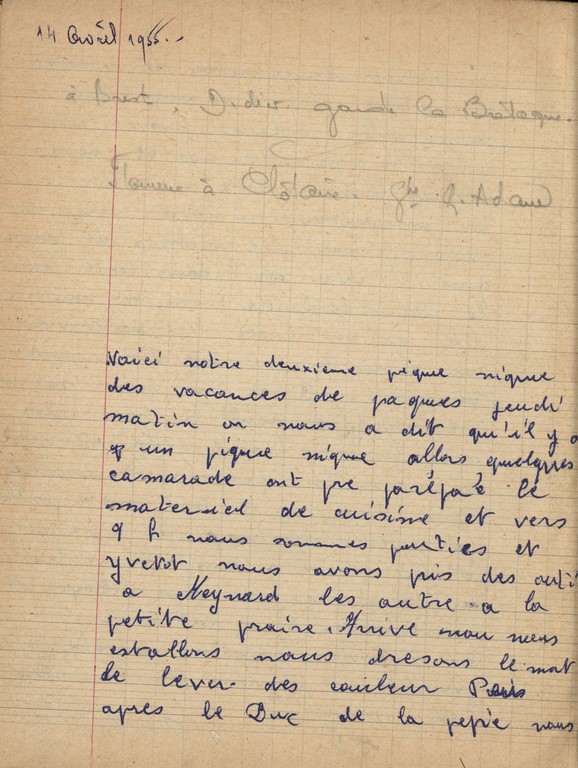 14 Avril 1955..
à Brest, Didier garde la Bretagne.
à Clôture. G. Adam
Voici notre deuxième pique nique
des vacances de paques jeudi
matin on nous a dit qu'il y a
un pique nique allors quelques
camarade ont pre parépaé le
materiel de cuisine et vers
9 h nous sommes parties et
yvetot nous avons pis des
a Neynard les autre a la
petite praire. Arrive nou nous
estallons nous dresons le mat
de lever des couleur Puis
apres le Duc de la pepie nous